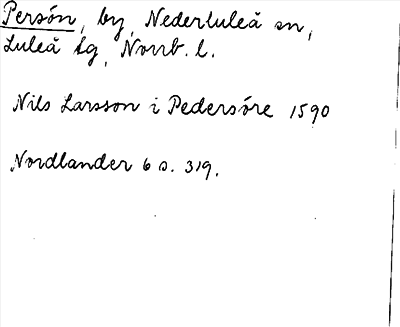 Persön, by, Nederluleå sn,
Luleå tg, Norrb. l.
Nils Larsson i Pedersöre 1590
Nordlander 6 s. 319.